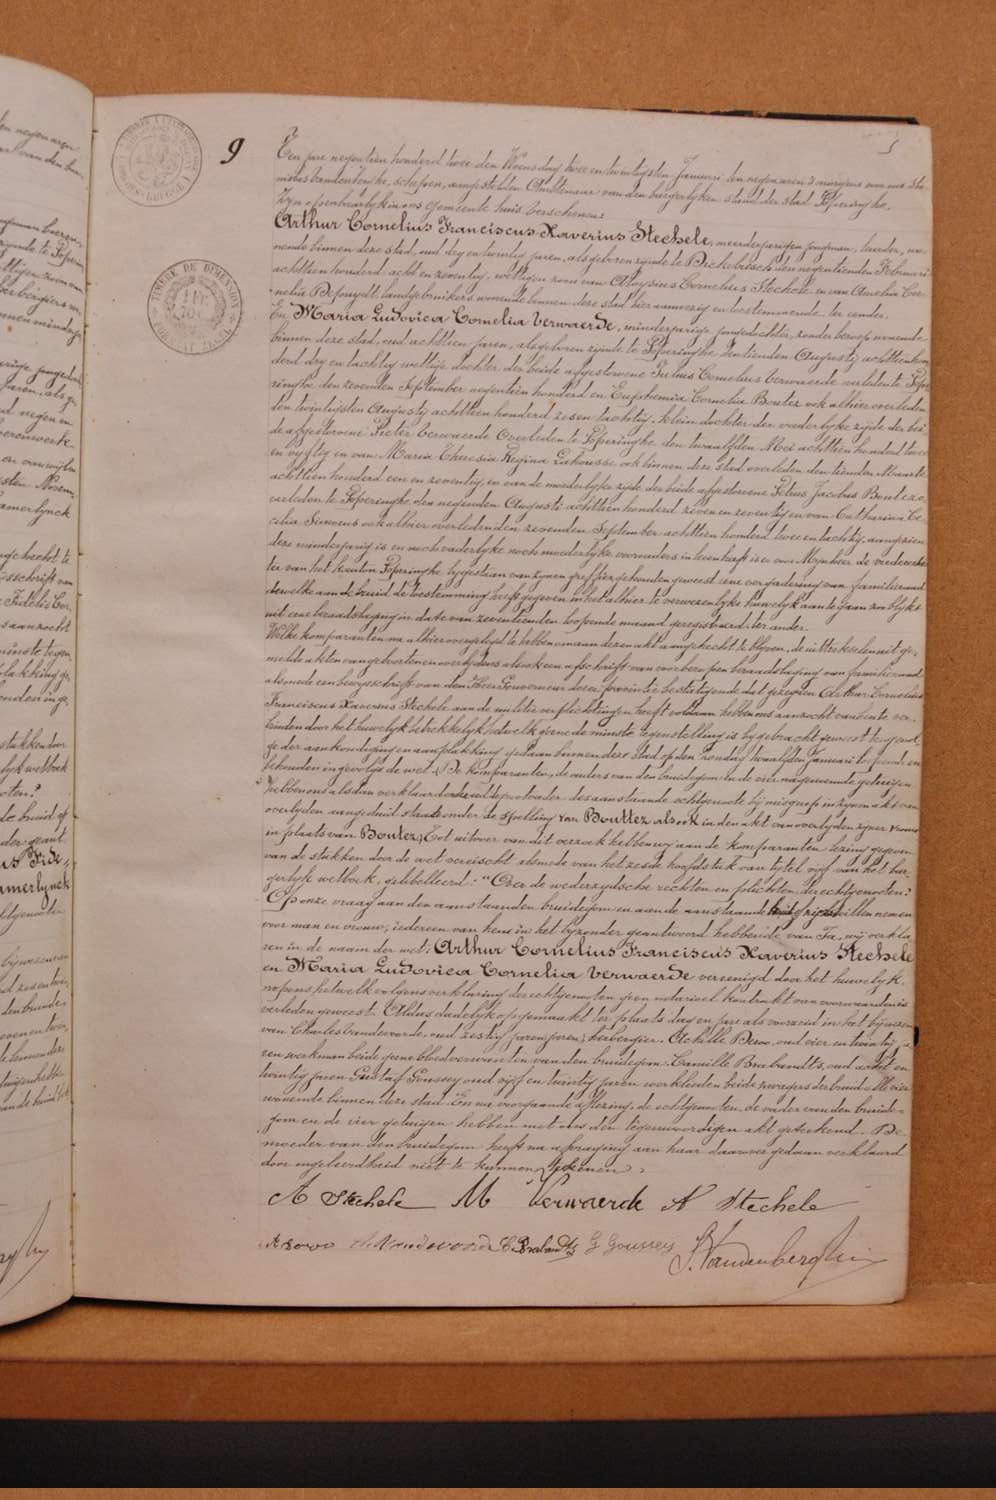 9
5
TIMBRE DE DIMENSION
Ten jare negentien honderd twee den Woensdag twee en twintigsten Januari ten negen uren 's morgens voor ons
Vandenberghe, schepen, aangestelden Amtenaar van den burgerlyken stand der stad Poperinghe
zyn openbaarlyk in ons gemeente huis verschenen:
Arthur Cornelius Franciscus Xaverius Stechele, meerderjarigen jongman, wo-
nende binnen deze stad, oud dry en twintig jaren, als geboren zynde te Dickebusch den negentienden Februari
achttien honderd acht en zeventig, wettigen zoon van Aloysius Cornelius Stechele en van Amelia Cor-
nelia Depuydt, landgebruikers wonende binnen deze stad hier aanwezig en toestemmende ter eender.
En Maria Ludovica Cornelia Verwaerde, minderjarige jongedochter, zonder beroep wonende
binnen deze stad, oud achttien jaren, als geboren zynde te Poperinghe den tienden Augusty achttien hon-
derd dry en tachtig wettige dochter der beide afgestorvene Julius Cornelius Verwaerde overleden te Pope-
ringhe den zevenden September negentien honderd en Euphemia Cornelia Boutez ook alhier overleden
den twintigsten Augusty achttien honderd zes en tachtig, klein dochter der vaderlyke zyde der bei
de afgestorvene Pieter Verwaerde overleden te Poperinghe den twaalfden Mei achttien honderd twee
en vyftig en van Maria Theresia Regina Lahousse ook binnen deze stad overleden den tienden Maarte
achttien honderd een en zeventig, en van de moederlyke zyde der beide afgestorvene Petrus Jacobus Boutez
overleden te Poperinghe den negenden Augusti achttien honderd zeven en zeventig en van Catharina Ce-
cilia Simoens ook alhier overleden den zevenden September achttien honderd twee en tachtig, aangezien
deze minderjarig is en noch vaderlyke noch moederlyke voorouders in leven heeft is er voor Mynheer de vrederech-
ter van het kanton Poperinghe bygestaan van zynen greffier gehouden geweest eene vergadering van familieraad
dewelke aan de bruid de toestemming heeft gegeven in het alhier te verwezenlyke huwelyk aan te gaan zoo blykt
uit eene beraadslaging in date van zeventienden loopende maand geregistreerd, ter ander.
Welke komparanten na alhier overgelegd te hebben om aan dezen akt aangehecht te blyven, de uittreksels uit ge-
melde akten van geboorten en overlydens alsook een afschrift van voorberoepen beraadslaging van familieraad
alsmede een bewysschrift van den Heer Gouverneur dezer provintie bestatigende dat gezegden Arthur Cornelius
Franciscus Xaverius Stechele aan de militie verplichtingen heeft voldaan hebben ons aanzocht van hunte ver-
binden door het huwelyk betrekkelyk hetwelk geene de minste tegenstelling is bygebracht geweest tengevol-
ge der aankondiging en aanplakking gedaan binnen deze stad op den zondag twaalfden Januari loopende en
gehouden ingevolge de wet. De komparanten, de ouders van den bruidegom en de vier nagenoemde getuigen
hebben ons alsdan verklaard dat de grootvader der aanstaande echtgenoote bij misgreep in zynen akt van
overlyden aangeduid staat onder de spelling van Bouttez alsook in den akt van overlyden zyner vrouw
in plaats van Boutez. Tot uitvoer van dit verzoek hebben wy aan de komparanten lezing gegeven
van de stukken door de wet vereischt alsmede van het zesde hoofdstuk van tytel vyf van het bur-
gerlyk wetboek, getebelleerd: "Over de wederzydsche rechten en plichten der echtgenooten?
Op onze vraag aan den aanstaanden bruidegom en aan de aanstaande bruid of zij zich willen nemen
voor man en vrouw, iedereen van hens in het byzonder geantwoord hebbende van Ja, wij verkla
ren in de naam der wet: Arthur Cornelius Franciscus Xaverius Stechele
en Maria Ludovica Cornelia Verwaerde vereenigd door het huwelyk.
nopens hetwelk volgens verklaring der echtgenooten geen notarieel kontrakt van voorwaarden is
verleden geweest. Aldus dadelyk opgemaakt ter plaats dag en jare als voorzeid in het bijwezen
van Charles Vandevoorde, oud zestig jaren, herbergier. Achille Deroo, oud vier en twintig ja
ren werkman beide geene bloedverwanten van den bruidegom. Camille Brabandts, oud acht en
twintig jaren Gustaf Goussey oud vyf en twintig jaren werklieden beide zwagers der bruid. Alle vier
wonende binnen deze stad. En na voorgaande aflezing, de echtgenooten, de vader van den bruide-
gom en de vier getuigen hebben met ons den tegenwoordigen akt geteekend. De
moeder van den bruidegom heeft na afvraging aan haar daarover gedaan verklaard
door ongeleerdheid niet te kunnen teekenen.
A Stechele M Verwaerde A Stechele
A Deroo ch Vandevoorde C Brabandts G Goussey
Vandenberghe